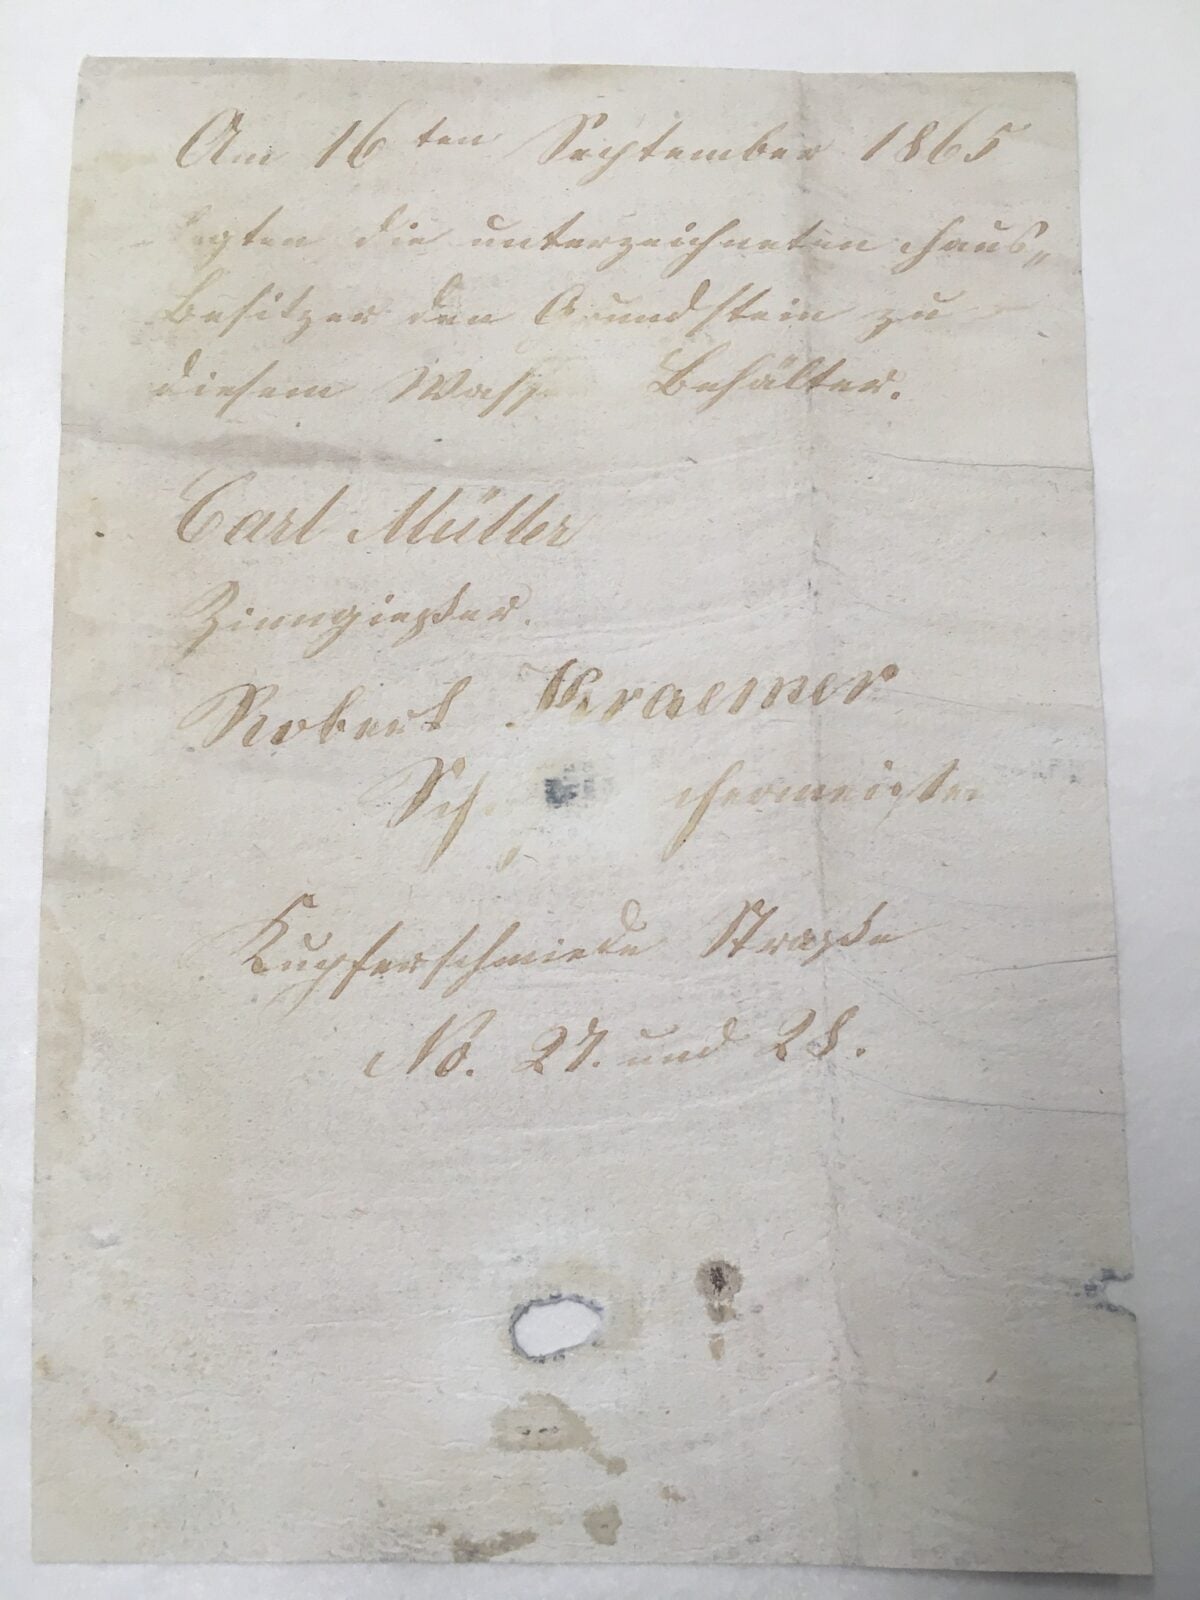 Am 16ten September 1865
legten die unterzeichneten Haus„
Besitzer den Grundstein zu
diesem Wass Behälter.
Carl Müller
Zinngießer.
Robert Kraemer
Sch chermeister
Kupferschmiede Straße
No. 27. und 28.